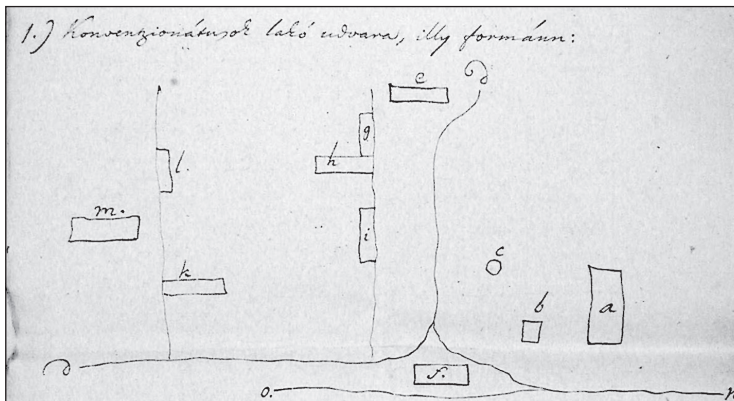 1.) Konvenzionátusok lakó udvara, illy formánn:
e
g
h
l.
m.
i
c
k
b
a
f.
o. n